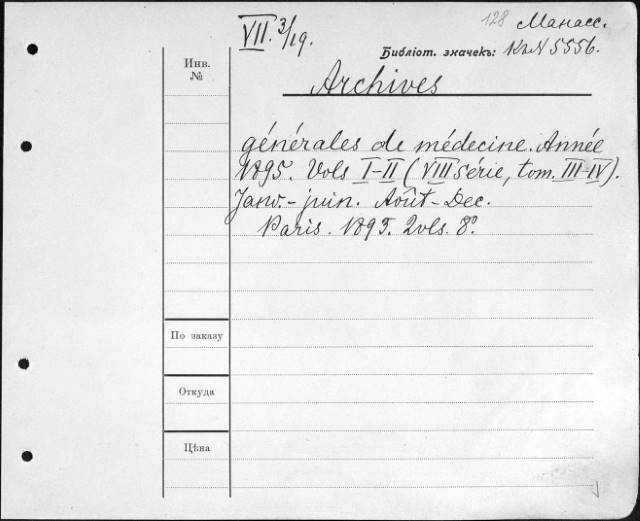 VII. 3/19.
128 Манасс.
Библіот. значекъ: КзN 5556.
Инв.
№
Archives
générales de médecine. Année
1895. Vols I-II (VIII série, tom. III-IV).
Janv.-juin. Août-Dec.
Paris. 1895. 2 vls. 8°
По заказу
Откуда
Цѣна